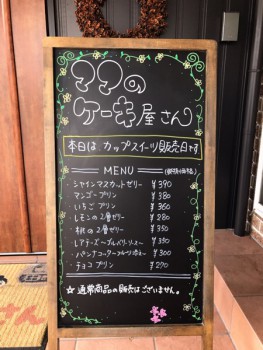 ママの
ケーキ屋さん
本日は カップスイーツ販売日です
MENU (税込価格)
・シャインマスカットゼリー ¥390
・マンゴープリン ¥380
・いちごプリン ¥360
・レモンの2層ゼリー ¥280
・桃の2層ゼリー ¥350
・レアチーズ〜ブルーベリーソース〜 ¥350
・パンナコッタ〜フルーツ添え〜 ¥300
・チョコプリン ¥270
☆ 通常商品の販売はございません。